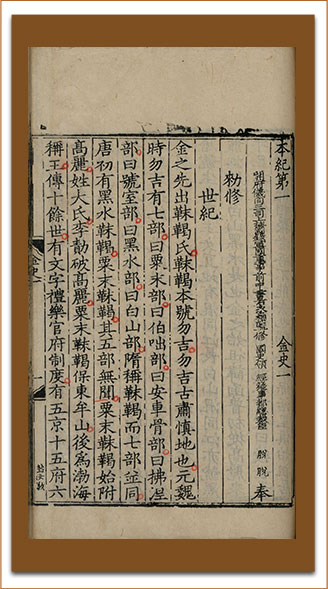 本紀第一 金史一
開府儀同三司 脫脫 奉
勅修
世紀
金之先出靺鞨氏靺鞨本號勿吉勿吉古肅慎地也元魏
時勿吉有七部曰粟末部曰伯咄部曰安車骨部曰拂涅
部曰號室部曰黑水部曰白山部隋稱靺鞨而七部並同
唐初有黑水靺鞨粟末靺鞨其五部無聞粟末靺鞨始附
高麗姓大氏李勣破高麗粟末靺鞨保東牟山後爲渤海
稱王傳十餘世有文字禮樂官府制度有五京十五府六
金史一